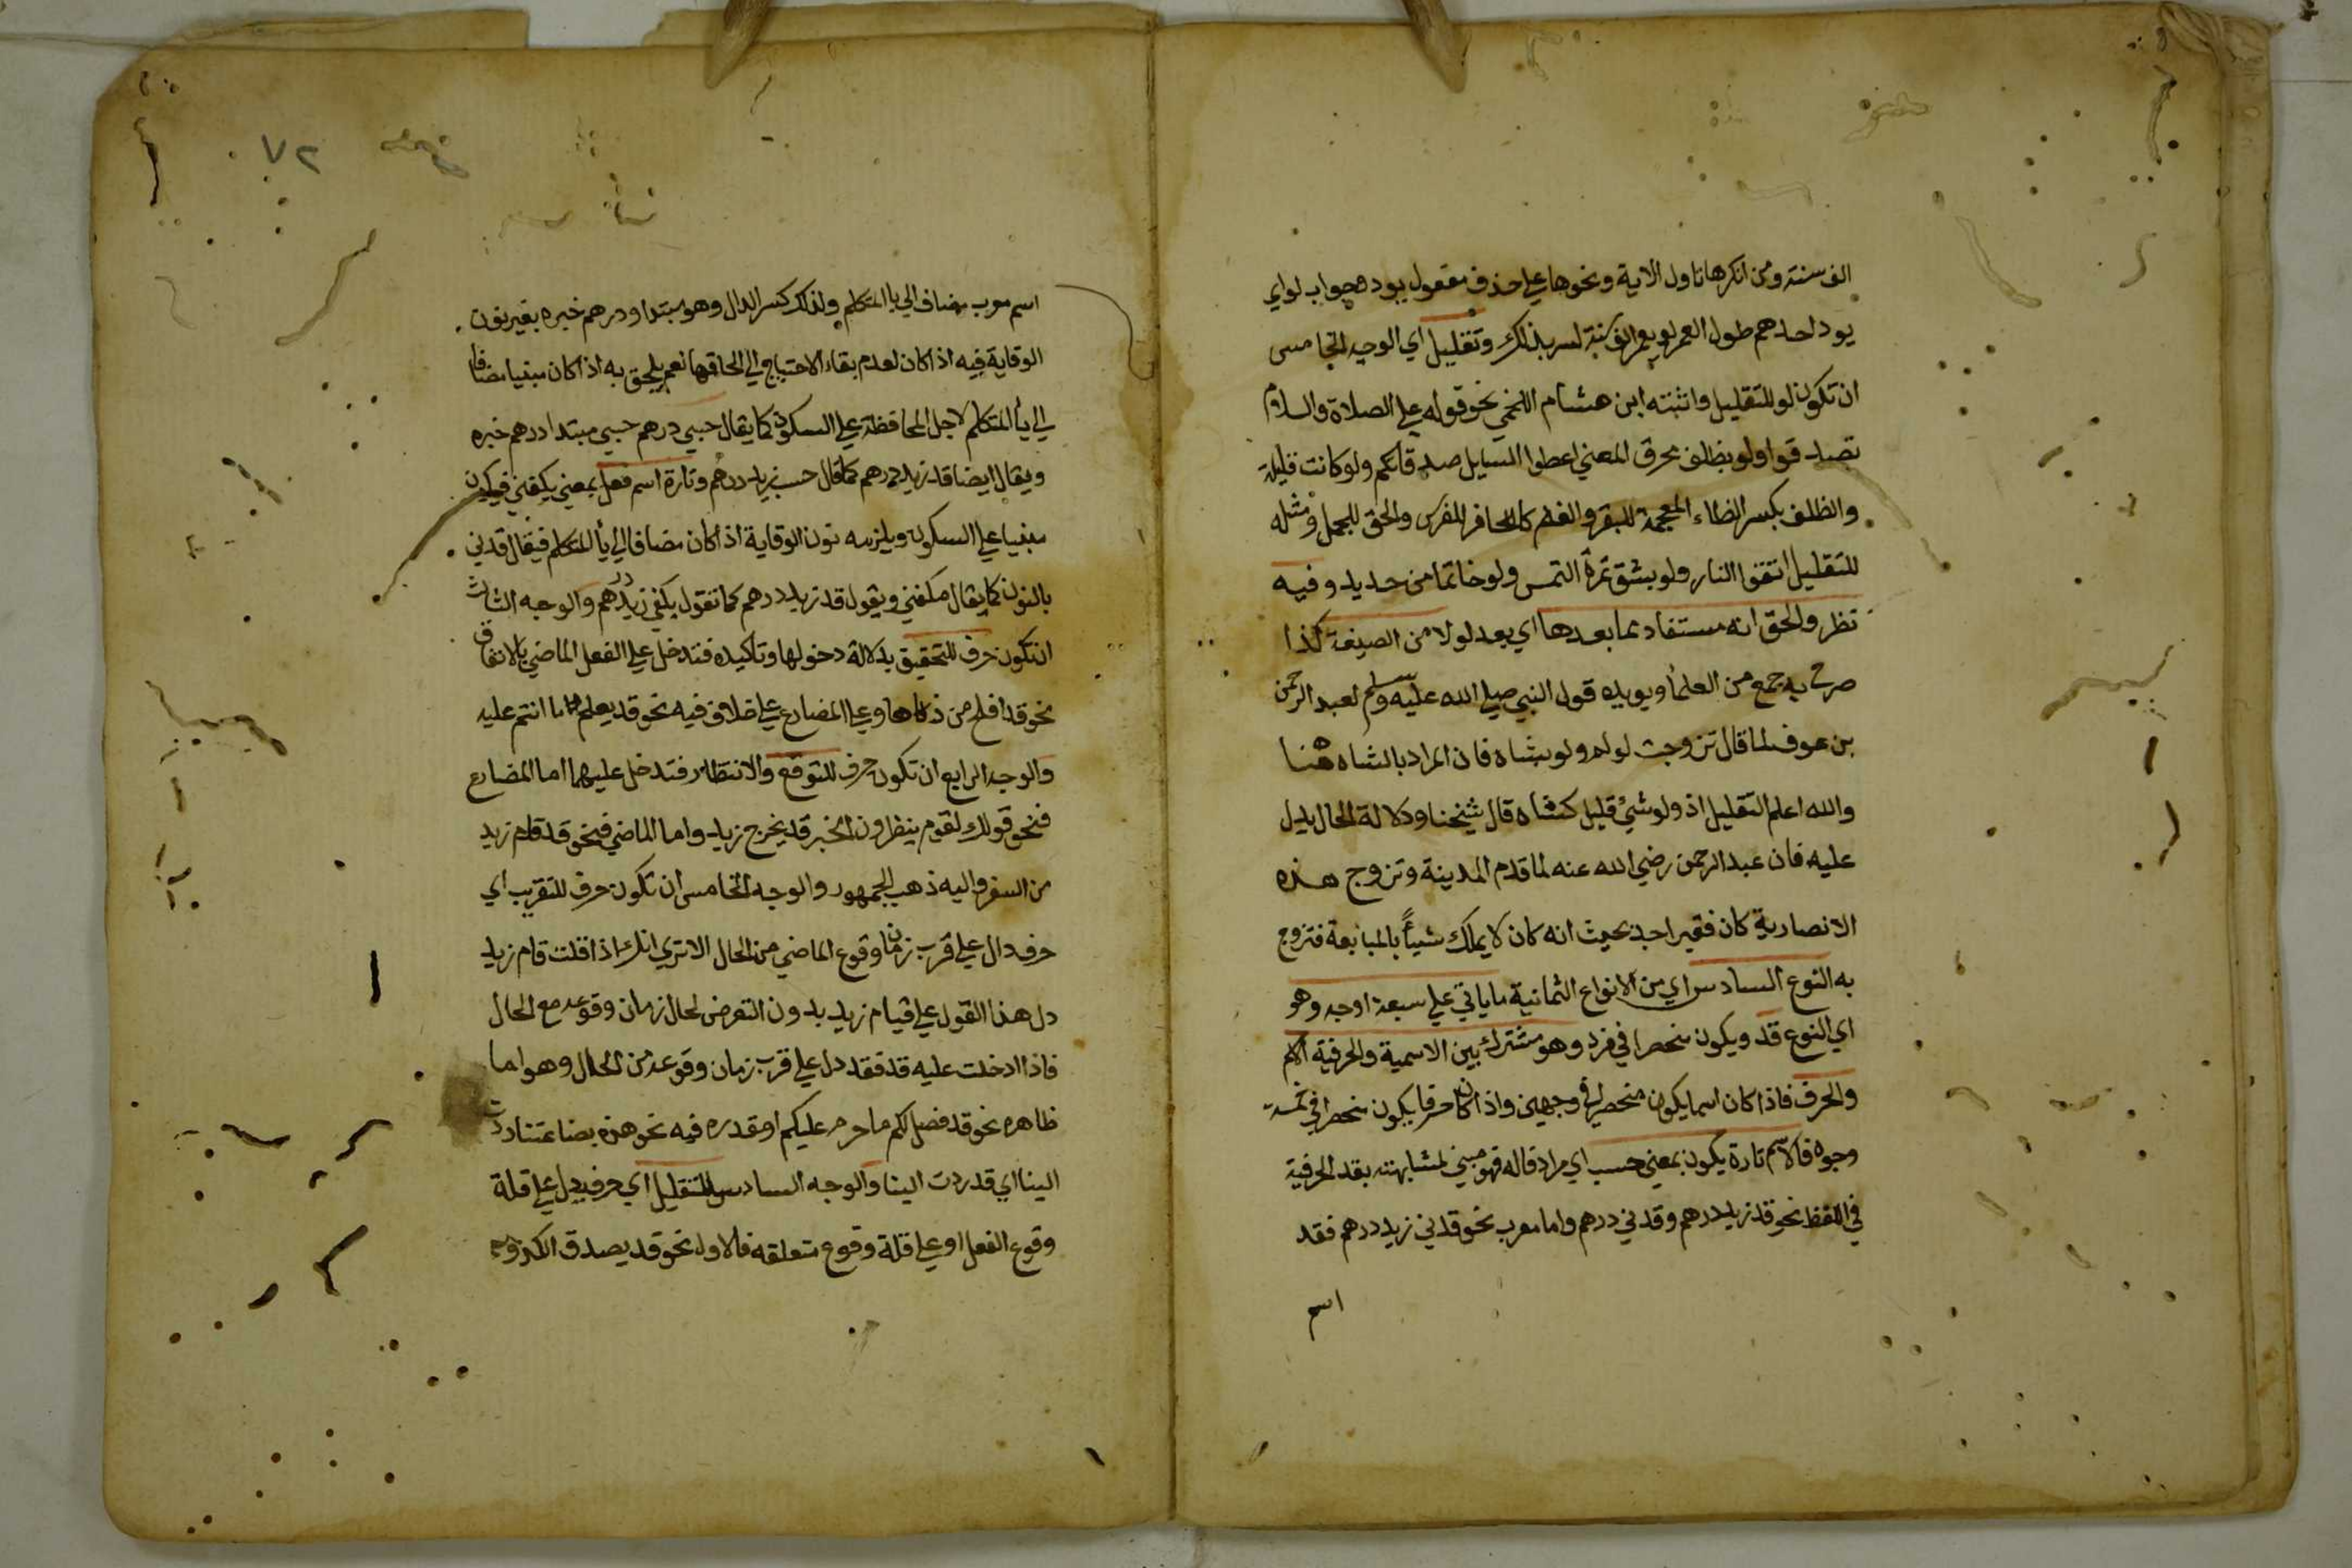 الف سنة ومن انكرها تاول الاية ونحوها على حذف مفعول يود وجواب لو اي
يود احدهم طول العمر لو يعمر الف سنة لسر بذلك وتقليل اي الوجه الخامس
ان تكون لو للتقليل واثبته ابن هشام اللخمي نحو قوله عليه الصلاة والسلام
تصدقوا ولو بظلف محرق المعني اعطوا السايل صدقاتكم ولو كانت قليلة
والظلف بكسر الظاء المعجمة للبقر والغنم كالحافر للفرس والخف للجمل ومثله
للتقليل اتقوا النار ولو بشق تمرة التمس ولو خاتما من حديد وفيه
نظر والحق انه مستفاد مما بعدها اي بعد لو لا من الصيغة كذا
صرح به جمع من العلمأ ويويده قول النبي صلي الله عليه وسلم لعبد الرحمن
بن عوف لما قال تزوجت اولم ولو بشاة فان المراد بالشاه هنا
والله اعلم التقليل اذ ولو شيء قليل كشاه قال شيخنا ودلالة الحال يدل
عليه فان عبد الرحمن رضي الله عنه لما قدم المدينة وتزوج هذه
الانصارية كان فقيرا جد بحيث انه كان لا يملك شيئاً بالمبايعة فتزوج
به النوع السادس اي من الانواع الثمانية ما ياتي علي سبعة اوجه وهو
اي النوع قد ويكون منحصرا في فرد وهو مشترك بين الاسمية والحرفية الاسم
والحرف فاذا كان اسما يكون منحصرا في وجهين واذا كان حرفا يكون منحصرا في خمسة
وجوه فالاسم تارة يكون بمعني حسب اي مرادفا له فهو مبني لمشابهته بقد الحرفية
في اللفظ نحو قد زيد درهم وقدني درهم واما معرب نحو قدني زيد درهم فقد
اسم
٧٢
اسم معرب مضاف الي يا المتكلم ولذلك كسر الدال وهو مبتدا ودرهم خبره بغير نون
الوقاية فيه اذا كان لعدم بقاء الاحتياج الي الحاقها نعم يلحق به اذا كان مبنيا مضافا
الي يأ المتكلم لاجل المحافظة علي السكون كما يقال حسبي درهم حسبي مبتدا درهم خبره
ويقال ايضا قد زيد درهم كما قال حسب زيد درهم وتارة اسم فعل بمعني يكفني فيكون
مبنيا علي السكون ويلزمه نون الوقاية اذا كان مضافا الي يأ المتكلم فيقال قدني
بالنون كما يقال يكفني ويقول قد زيد درهم كما تقول يكفي زيد درهم والوجه الثالث
ان تكون حرف للتحقيق بدلالة دخولها وتاكيده فتدخل علي الفعل الماضي بالاتفاق
نحو قد افلح من زكاها وعلي المضارع علي خلاف فيه نحو قد يعلم ما انتم عليه
والوجه الرابع ان تكون حرف للتوقع والانتظار فتدخل عليهما اما المضارع
فنحو قولك لقوم ينظرون الخبر قد يخرج زيد واما الماضي فنحو قد قام زيد
من السفر واليه ذهب الجمهور والوجه الخامس ان تكون حرف للتقريب اي
حرف دال علي قرب زمان وقوع الماضي من الحال الا تري انك اذا قلت قام زيد
دل هذا القول علي قيام زيد بدون التعرض لحال زمان وقوعه مع الحال
فاذا ادخلت عليه قد فقد دل علي قرب زمان وقوعه من الحال وهو اما
ظاهره نحو قد فصل لكم ما حرم عليكم او مقدره فيه نحو هذه بضاعتنا ردت
الينا اي قد ردت الينا والوجه السادس للتقليل اي حرف يدل علي قلة
وقوع الفعل او علي قلة وقوع متعلقه فالاول نحو قد يصدق الكذوب